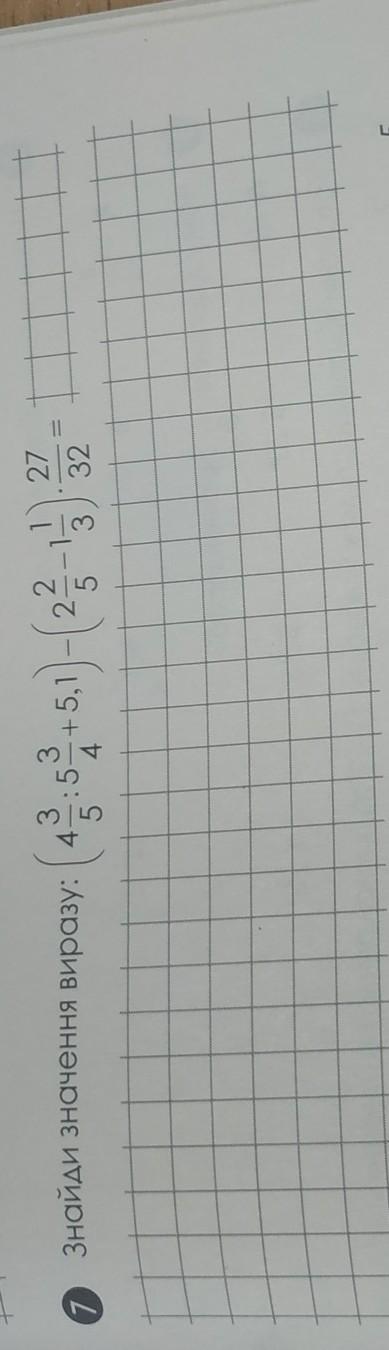 7 Знайди значення виразу: (4 3/5 : 5 3/4 + 5,1) − (2 2/5 − 1 1/3) · 27/32 =